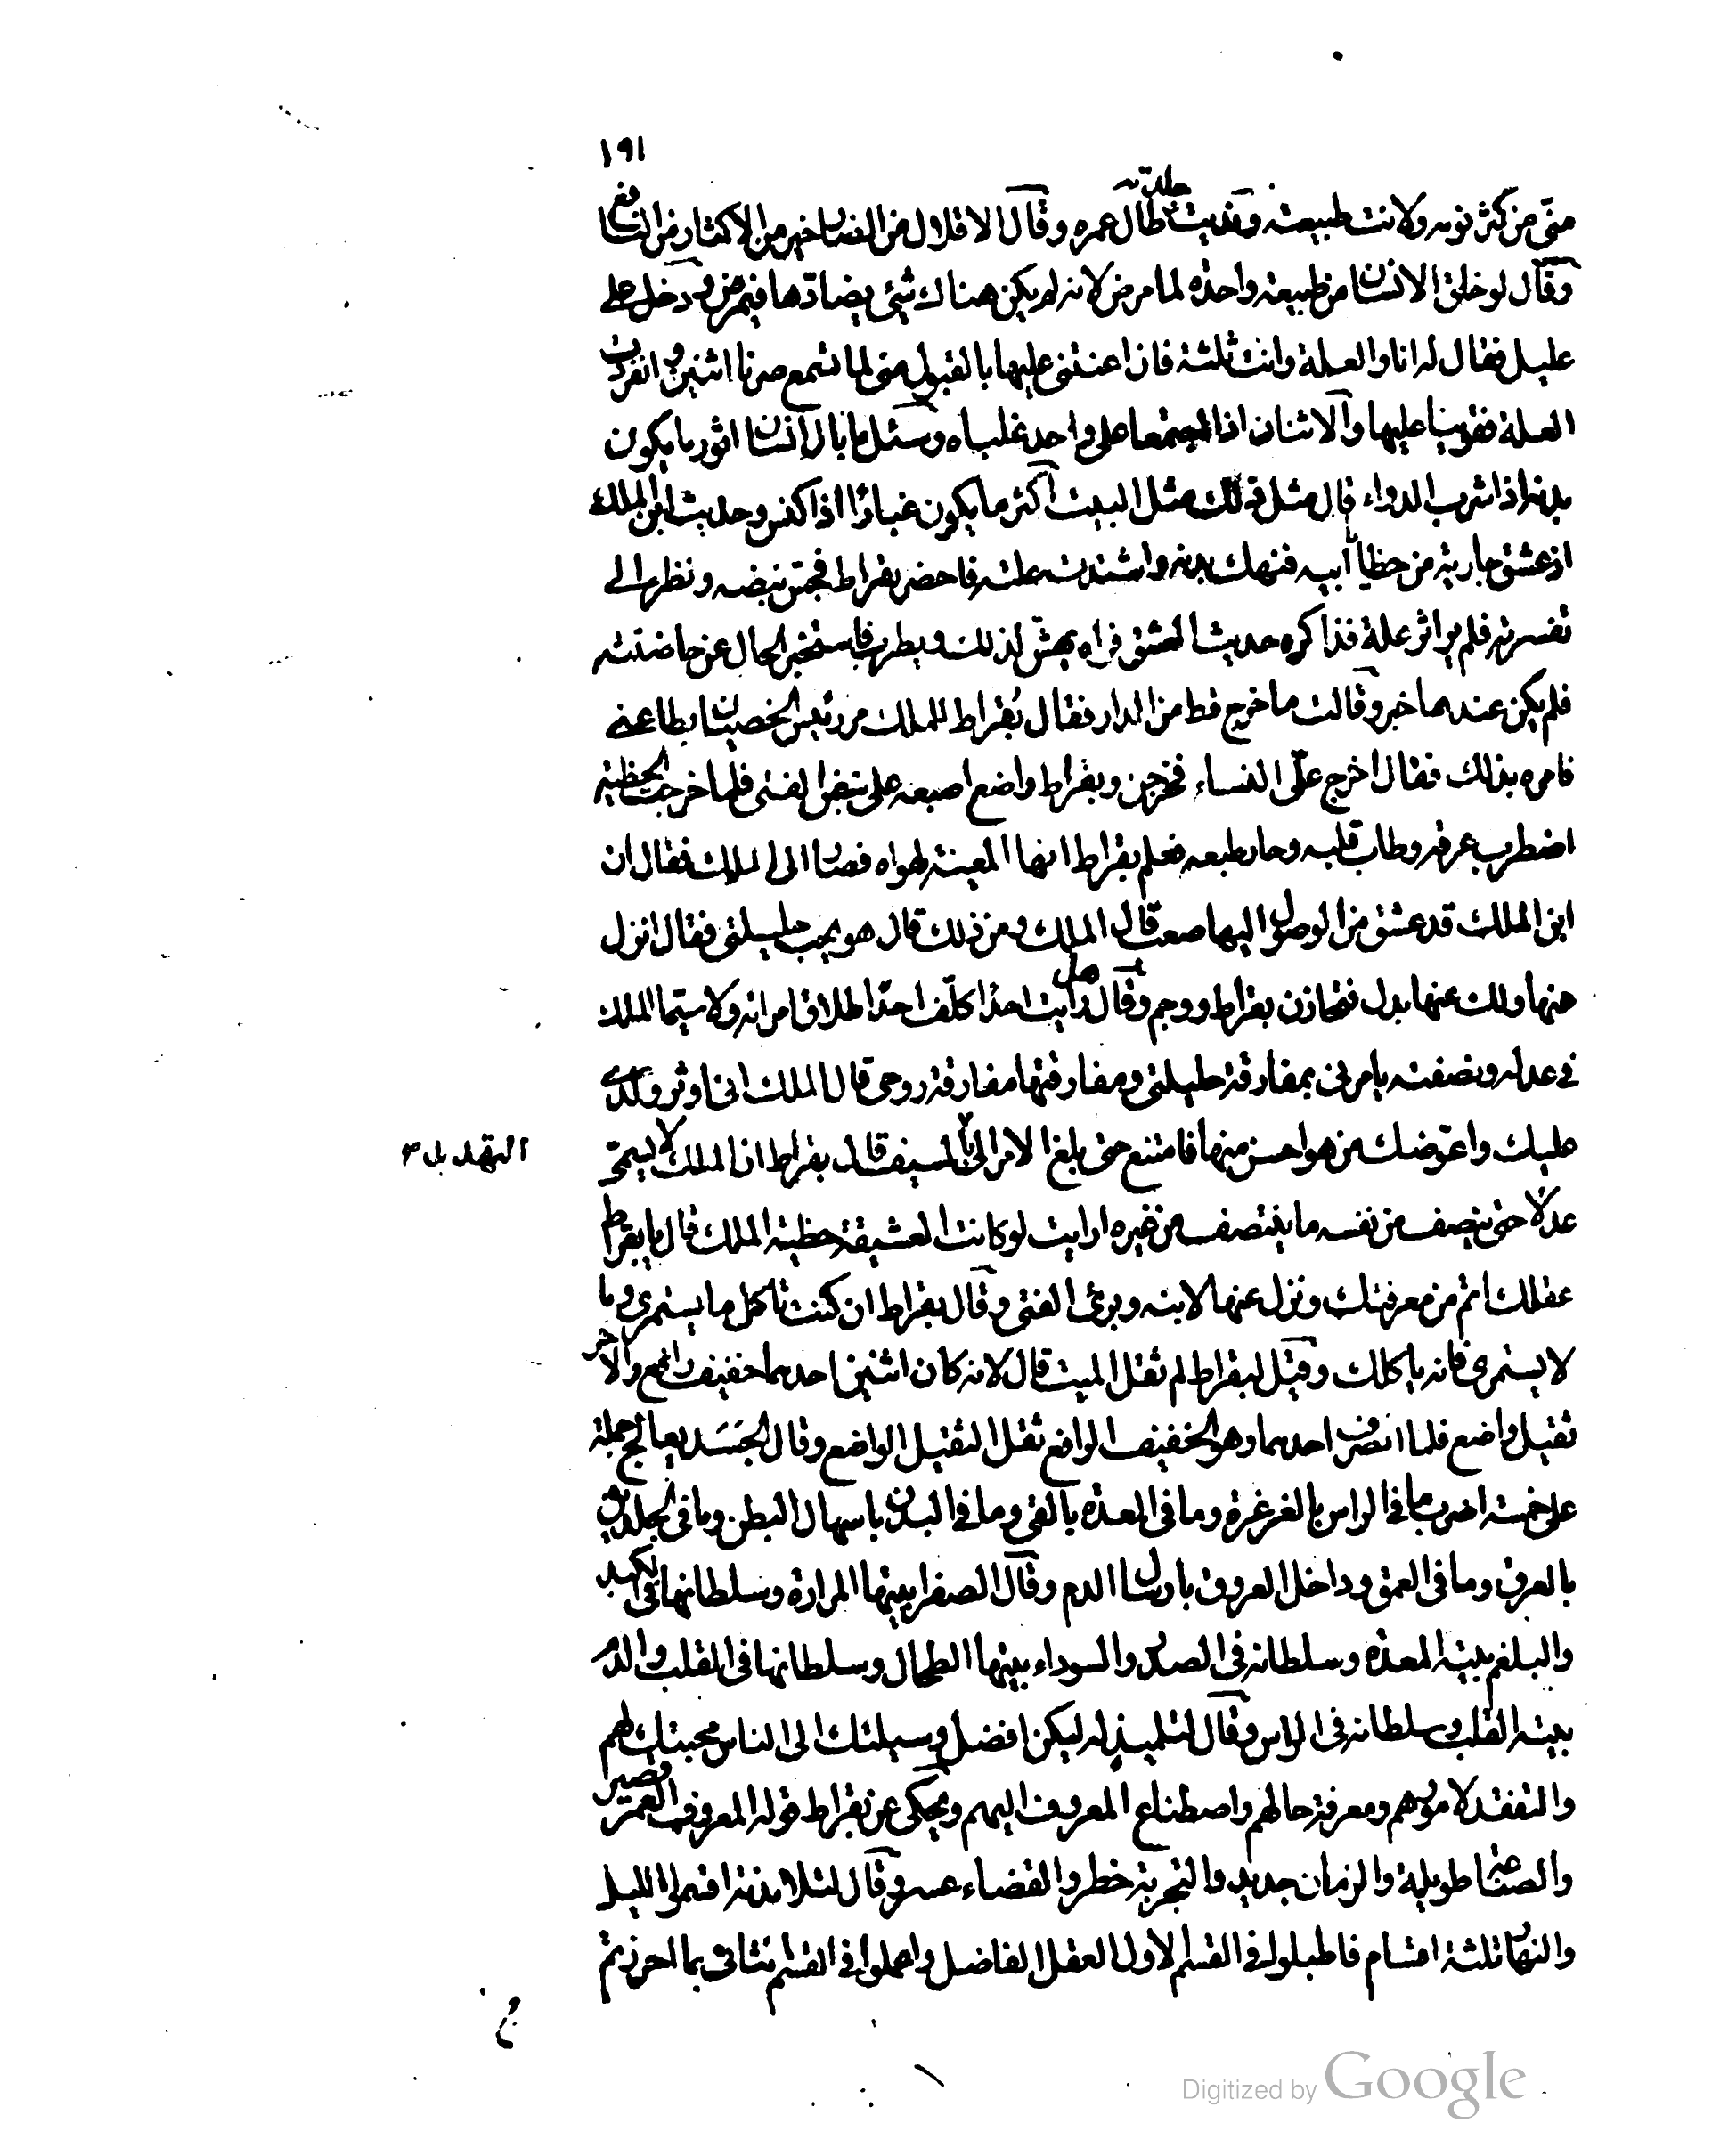 ١٩١
منّى من كثر نومه ولانت طبيعته ونديت جلدته طال عمره وقال الاقلال من الضار خير من الاكثار من النافع
وقال لو خلق الانسان من طبيعة واحدة لما مرض لانه لم يكن هناك شئ يضادّها فيمرض ودخل على
عليل فقال له انا والعلة وانت ثلثة فان اعنتنى عليها بالقبول منى لما تسمع صرنا اثنين وانفردت
العلة فقوينا عليها والاثنان اذا اجتمعا على واحد غلباه وسئل ما بال الانسان اثور ما يكون
بدنه اذا شرب الدواء قال مثل ذلك مثل البيت اكثر ما يكون غبارًا اذا كنس وحديث ابن الملك
اذ عشق جارية من حظايا ابيه فنهك بدنه واشتدت علته فاحضر بقراط فجسّ نبضه ونظر الى
تفسرته فلم ير اثر علة فذاكره حديث العشق فراه يهشّ لذلك ويطرب فاستخبر الحال عن حاضنته
فلم يكن عندها خبر وقالت ما خرج قط من الدار فقال بُقراط للملك مر رئيس الخصيان بطاعتى
فامره بذلك فقال اخرج علىّ النساء فخرجن وبقراط واضع اصبعه على نبض الفتى فلما خرجت الحظية
اضطرب عرقه وطاب قلبه وحار طبعه فعلم بقراط انها المعينة لهواه فصار الى الملك فقال ان
ابن الملك قد عشق من الوصول اليها صعب قال الملك ومن ذلك قال هو يحب حليلتى فقال انزل
عنها ولك عنها بدل فتحازن بقراط ووجم وقال هل رايت احدًا كلّف احدًا طلاق امراته ولا سيّما الملك
فى عدله ونصفته يامرنى بمفارقة حليلتى ومفارقتها مفارقة روحى قال الملك انى اوثر ولدى
عليك واعوّضك من هو احسن منها فامتنع حتى بلغ الامر الى التهديد بالسيف قال بقراط ان الملك لا يسمّى
عدلًا حتى ينصف من نفسه ما ينتصف من غيره ارايت لو كانت العشيقة حظية الملك قال يا بقراط
عقلك اتم من معرفتك ونزل عنها لابنه وبرئ الفتى وقال بقراط ان كنت تاكل ما يستمرى وما
لا يستمرى فانه ياكلك وقيل لبقراط لم ثقل الميت قال لانه كان اثنين احدهما خفيف رافع والاخر
ثقيل واضع فلما انصرف احدهما وهو الخفيف الرافع ثقل الثقيل الواضع وقال الجَسَد يعالج جملة
على خمسة اضرب ما فى الراس بالغرغرة وما فى المعدة بالقى وما فى البدن باسهال البطن وما فى الجلدين
بالعرق وما فى العمق وداخل العروق بارسال الدم وقال الصفرا بيتها المرارة وسلطانها فى الكبد
والبلغم بيته المعدة وسلطانه فى الصدر والسوداء بيتها الطحال وسلطانها فى القلب والدم
بيته القلب وسلطانه فى الراس وقال لتلميذ له ليكن افضل وسيلتك الى الناس محبتك لهم
والتفقد لامورهم ومعرفة حالهم واصطناع المعروف اليهم ويحكى عن بقراط قوله المعروف العمر قصير
والصناعة طويلة والزمان جديد والتجربة خطر والقضاء عسر وقال لتلامذته اقسموا الليل
والنهار ثلثة اقسام فاطلبوا فى القسم الاول العقل الفاضل واعملوا فى القسم الثانى بما احرزتم